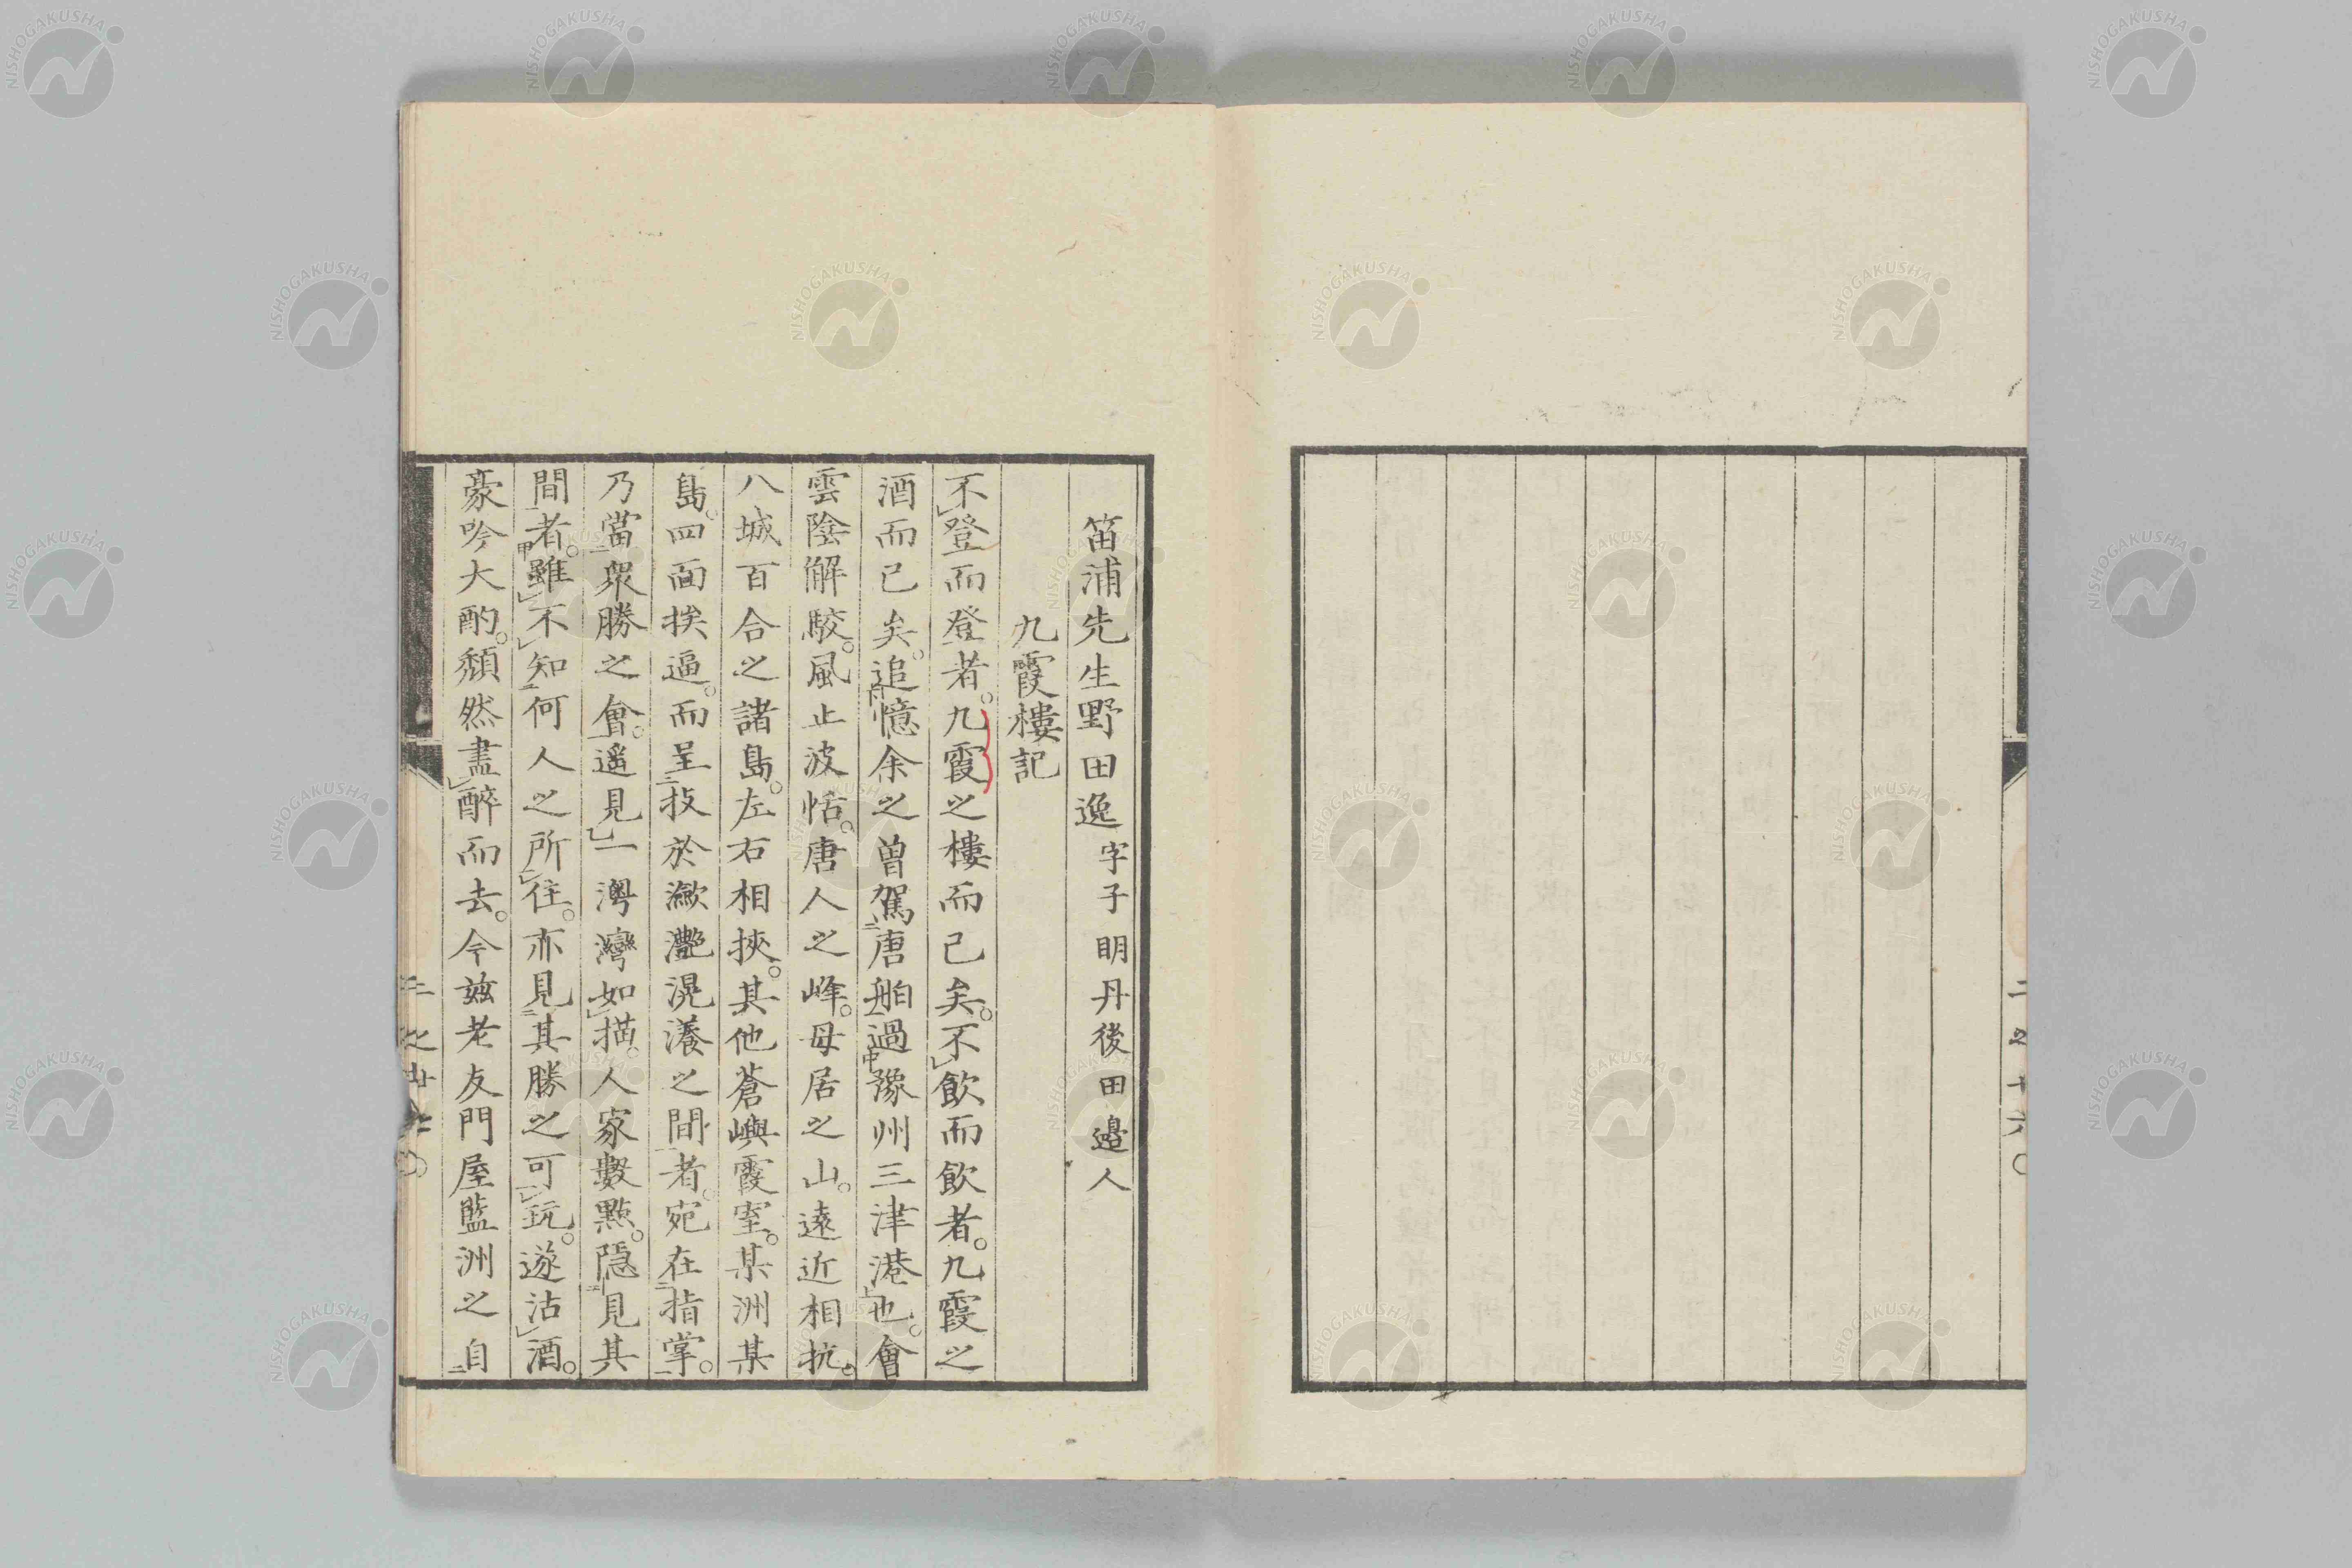 二之十六〇
笛浦先生野田逸字子明丹後田邉人
九霞樓記
不登而登者。九霞之樓而已矣。不飲而飲者。九霞之
酒而已矣。追憶余之曽駕唐舶過豫州三津港也。會
雲陰解駮。風止波恬。唐人之峰。母居之山。遠近相抗。
八城百合之諸島。左右相挾。其他蒼嶼霞室。某洲某
島。四面挨逼。而呈技於瀲灧滉瀁之間者。宛在指掌。
乃當衆勝之會。遥見一灣灣如描。人家數點。隠見其
間者。雖不知何人之所住。亦見其勝之可玩。遂沽酒。
豪吟大酌。頽然盡醉而去。今玆老友門屋監洲之自
NISHOGAKUSHA